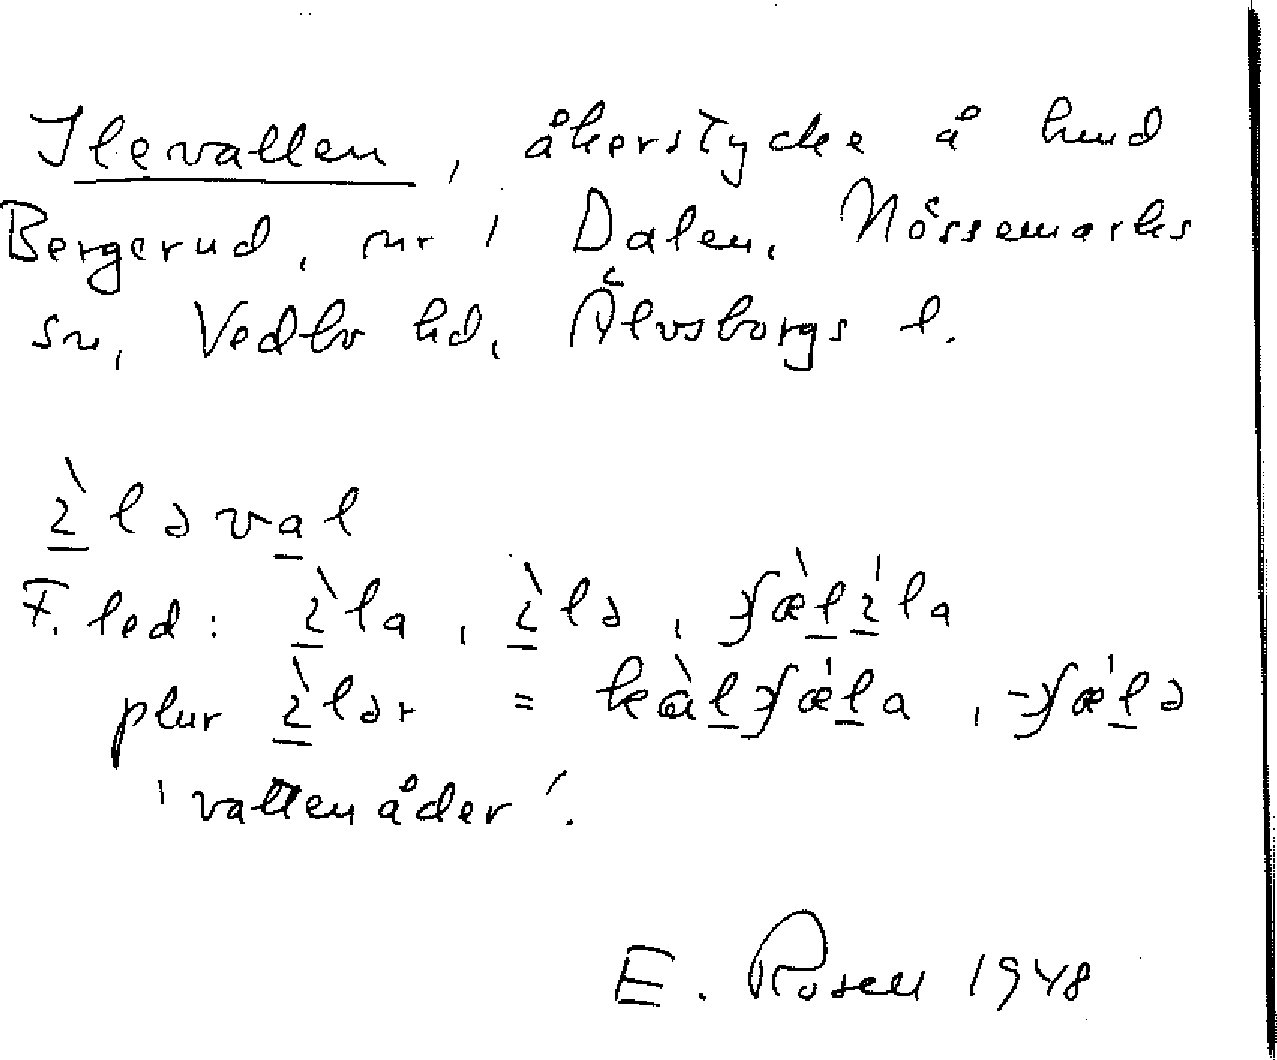 Ilevallen, åkerstycke å hmd
Bergerud, nr 1 Dalen, Nössemarks
sn, Vedbo hd, Älvsborgs l.
ìləval
F. led: ìla, ìlə,
plur ìlər =
'vattenåder'.
E. Rosell 1948